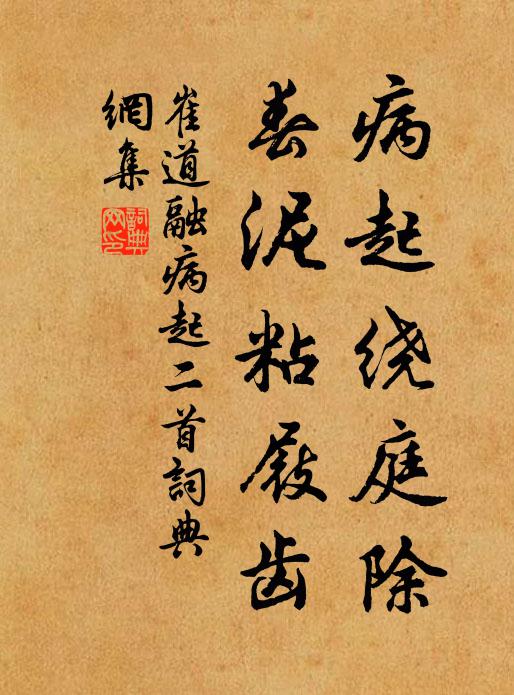 病起绕庭除
春泥粘屐齿
崔道融病起二首詞典
網集
詞典
网印